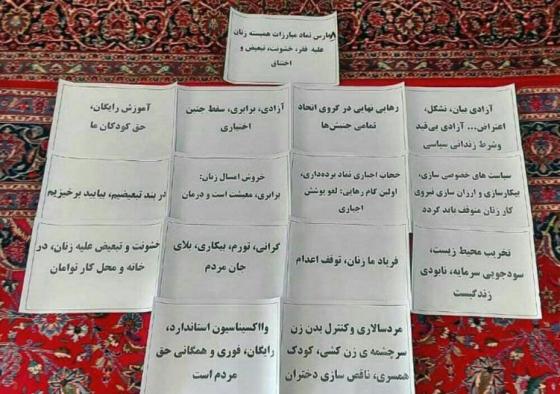 ۸مارس نماد مبارزات همبسته زنان
علیه فقر، خشونت، تبعیض و
اختناق
آزادی بیان، تشکل،
اعتراض... آزادی بی‌قید
وشرط زندانی سیاسی
رهایی نهایی در گروی اتحاد
تمامی جنبش‌ها
آزادی، برابری، سقط جنین
اختیاری
آموزش رایگان،
حق کودکان ما
سیاست های خصوصی سازی،
بیکارسازی و ارزان سازی نیروی
کار زنان متوقف باید گردد
حجاب اجباری نماد برده‌داری،
اولین گام رهایی: لغو پوشش
اجباری
خروش امسال زنان:
برابری، معیشت است و درمان
در بند تبعیضیم، بیایید برخیزیم
تخریب محیط زیست،
سودجویی سرمایه، نابودی
زندگیست
فریاد ما زنان، توقف اعدام
گرانی، تورم، بیکاری، بلای
جان مردم
خشونت و تبعیض علیه زنان، در
خانه و محل کار توامان
مردسالاری وکنترل بدن زن
سرچشمه ی زن کشی، کودک
همسری، ناقص سازی دختران
وااکسیناسیون استاندارد،
رایگان، فوری و همگانی حق
مردم است